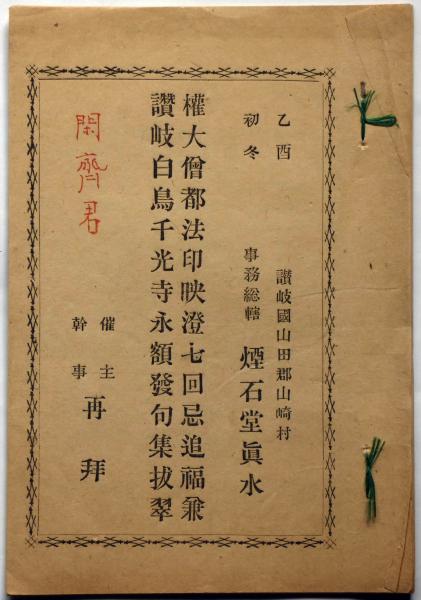 乙酉
初冬
讃岐國山田郡山崎村
事務総轄 煙石堂眞水
權大僧都法印映澄七回忌追福兼
讃岐白鳥千光寺永額發句集抜翠
催主
幹事
再拜
閑齋君